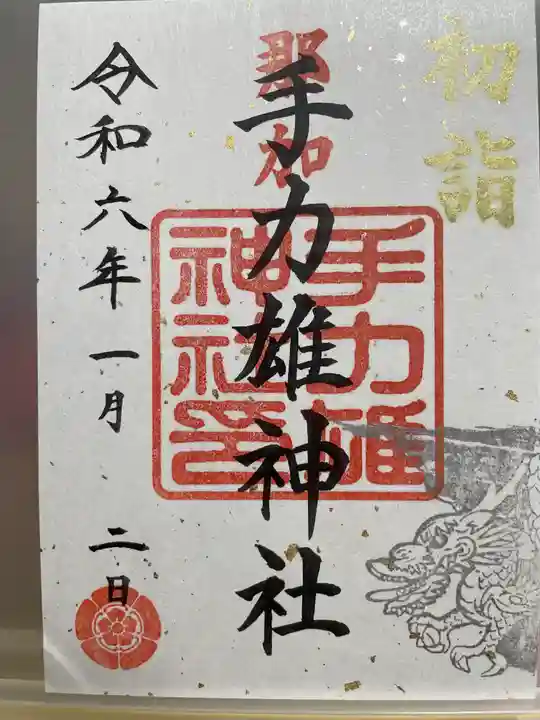 初詣
那加
手力雄神社
手力雄
神社印
令和六年一月二日